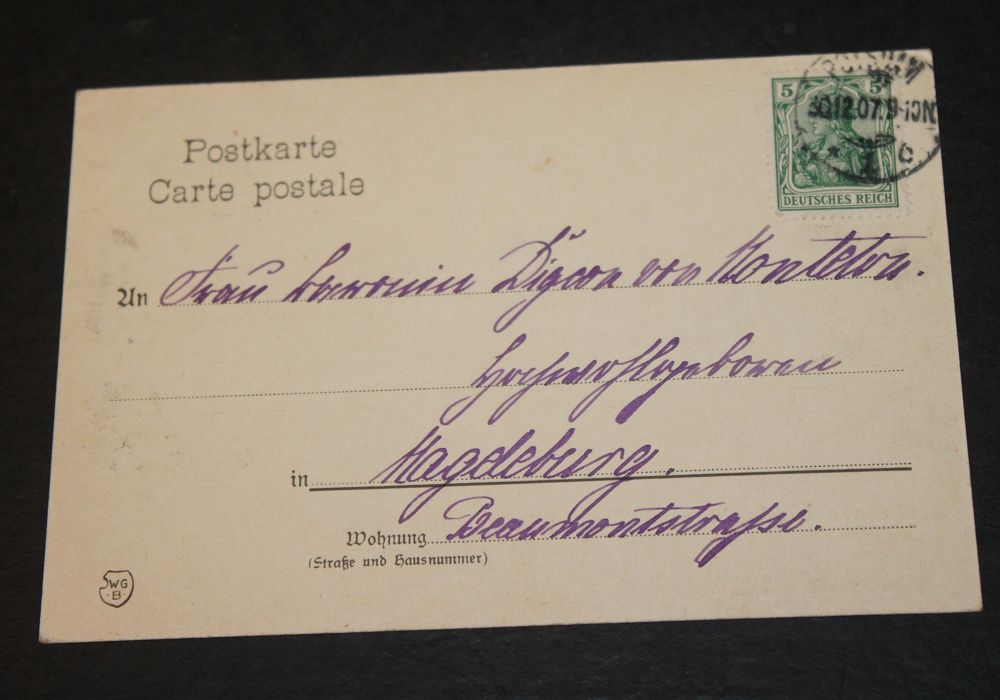 Postkarte
Carte postale
5 5
POTSDAM
30.12.07.9-10N
* 1 C
DEUTSCHES REICH
An Frau Baronin Digeon von Monteton.
Hochwohlgeboren
in Magdeburg.
Wohnung Beaumontstraße.
(Straße und Hausnummer)
WG
·B·